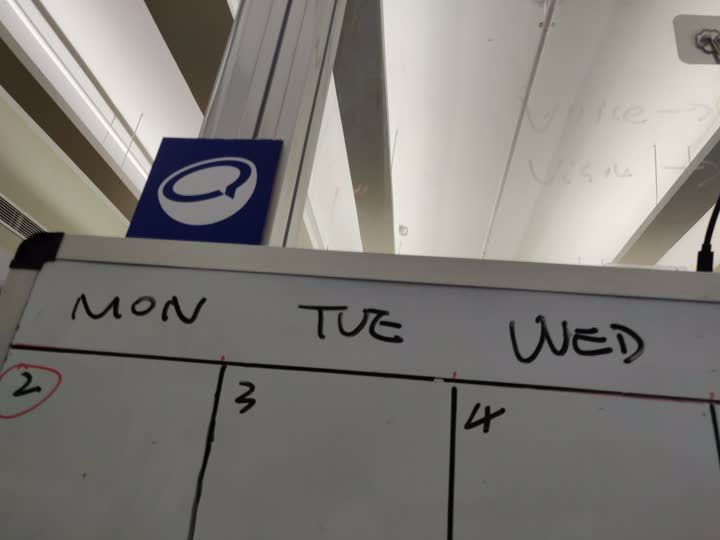 Voice →
Vision →
MON TUE WED
2 3 4